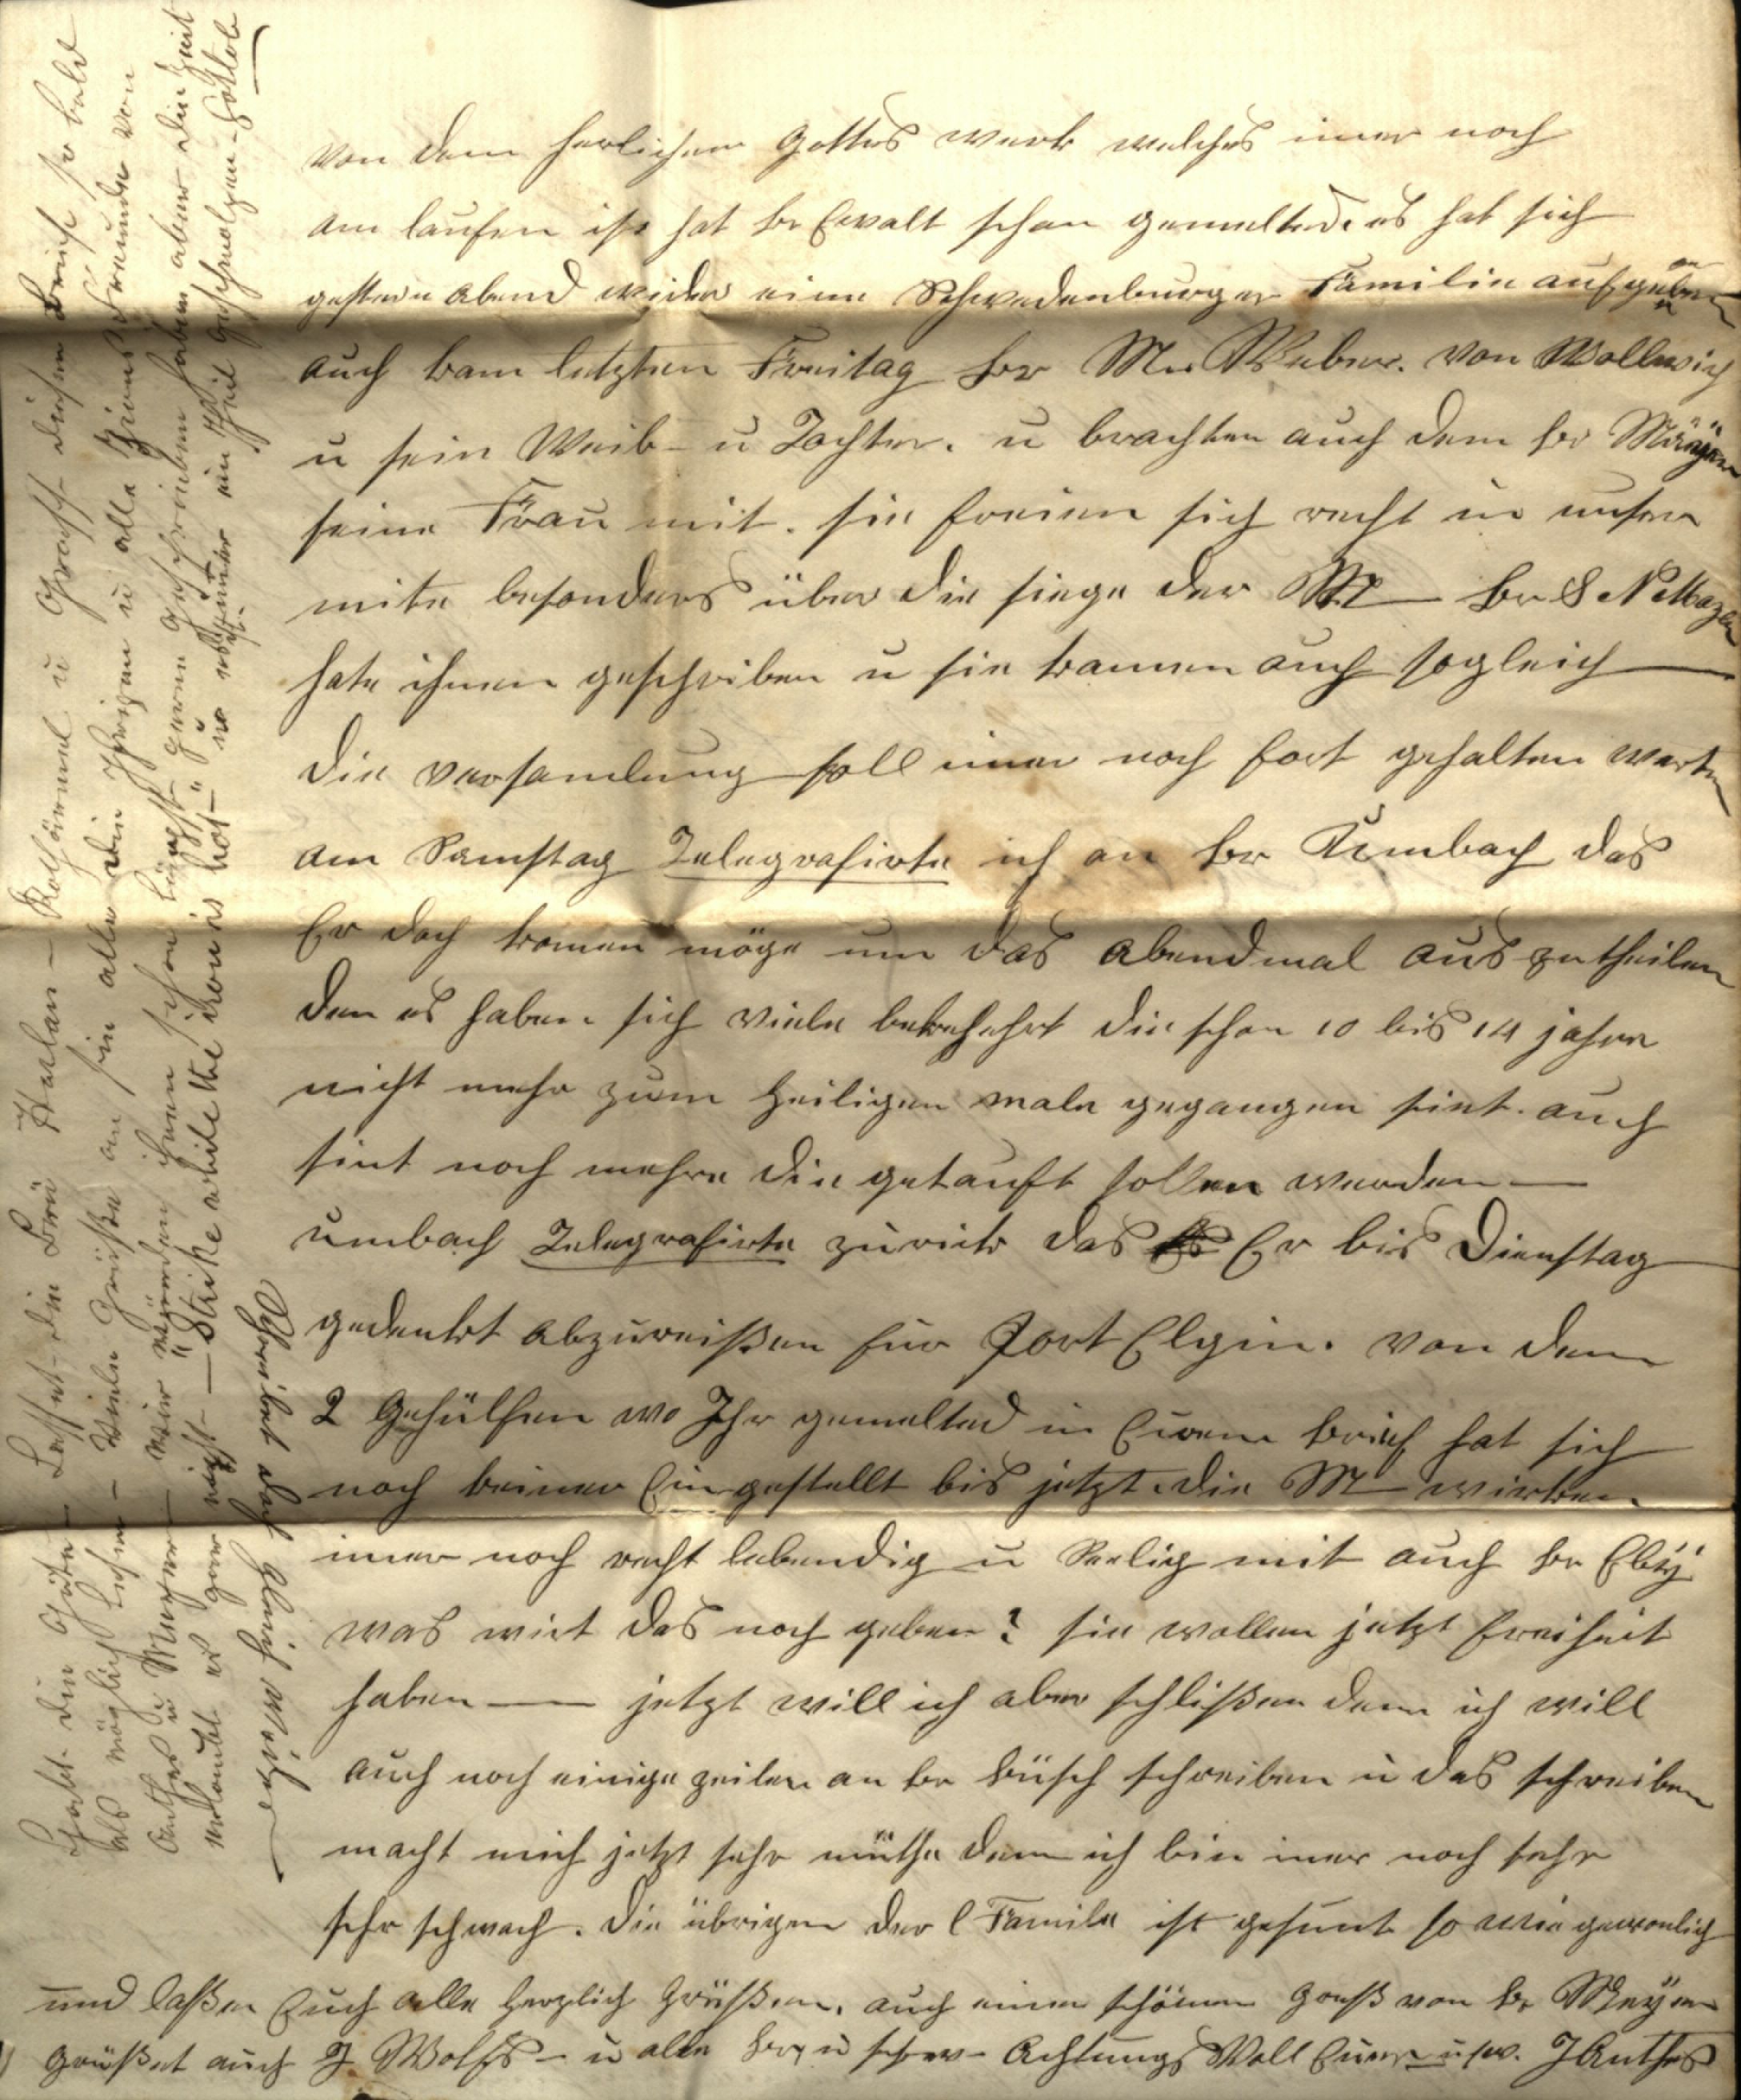 von dem herlichen Gottes werk welches imer noch
am laufen ist hat br Ewalt schon gemelted. es hat sich
gestern abend wider eine Schwedenburger Familie aufgeben
auch kam letzten Freitag br Mr Weber. von Wollwich
u sein Weib - u Tochter. u brachten auch dem br
seine Frau mit. sie freien sich recht in unsere
mite besonders über die siege der M— br S N
hate ihnen geschriben u sie kamen auch sogleich —
die versamlung soll imer noch fort gehalten werten
am Samstag Telegrafirte ich an br Umbach das
Er doch komen möge um das abendmal aus zu theilen
den es haben sich viele bekehehrt die schon 10 bis 14 jahre
nicht mehr zum Heiligen male gegangen sint. auch
sint noch mehre die getauft sollen werden —
umbach Telegrafirte zurick das Er bis Dienstag
gedenkt abzureißen für Port Elgin. von dem
2 Gehülfen wo Ihr gemelted in Eurem brief hat sich
noch keiner Ein gestellt bis jetzt. die M— wirken
imer noch recht lebendig u Seelig mit auch br Eby
was wirt das noch geben? sie wollen jetzt freiheit
haben — jetzt will ich aber schlißen denn ich will
auch noch einige zeilen an br büsch schreiben u das schreiben
macht mich jetzt sehr müthe denn ich bin imer noch sehr
sehr schwach. die übrigen der l Famile ist gesunt so wie gewonlich
und laßen Euch alle herzlich Grüßen. auch einen schönen Gruß von br Meyer
Grüßet auch J. Wolfs - u alle br u schw - Achtungs Voll Euer usw. J Anthes
Habt die Güte - Lasset die Brü Harlan - u diesen Brief so bald
als möglich lesen - viele Grüße an sie alle die Ihrigen u alle Zions Freunde von
Anthes u Meyer - wir würden ihnen schon längst gerne geschrieben haben aber die Zeit
erlaubt es gar nicht - "Strike while the iron is hot" u
Schreibet doch gleich wider